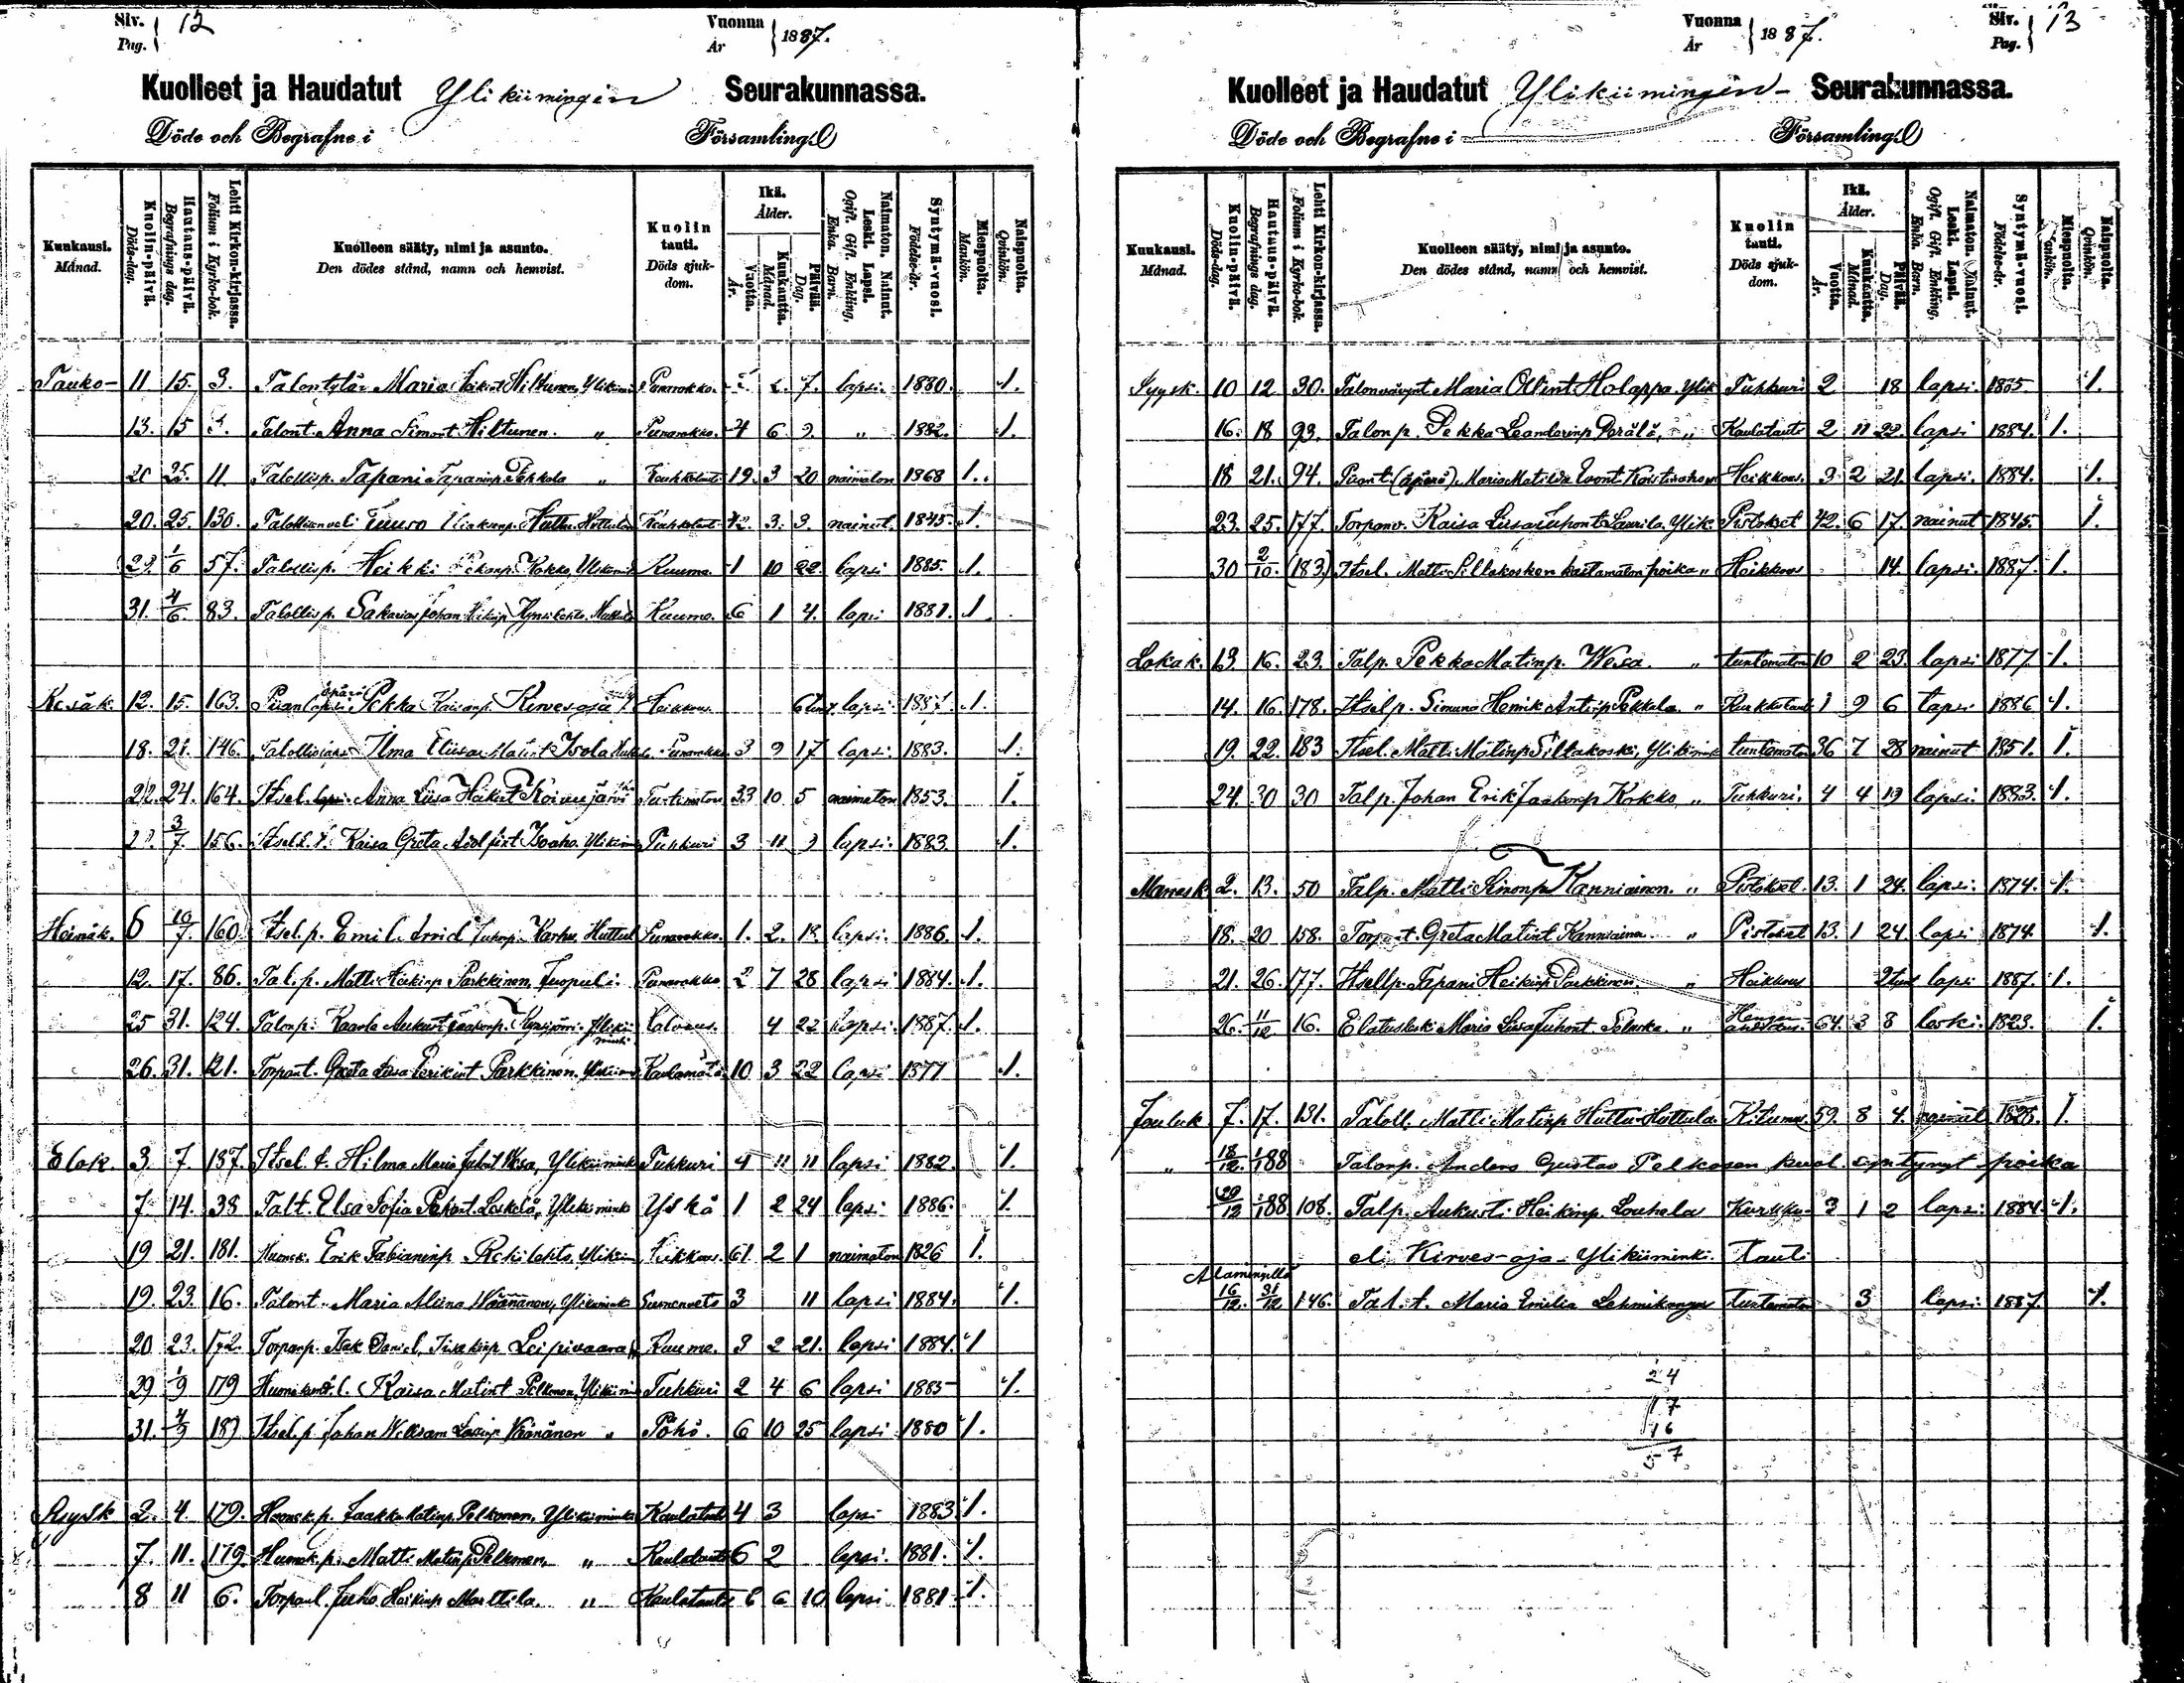 Siv. Pag. 12
Vuonna År 1887.
Kuolleet ja Haudatut Ylikiimingin Seurakunnassa.
Döde och Begrafne i Församling
Kuukausi. Månad.
Kuolin-päivä. Döds-dag.
Hautaus-päivä. Begrafnings dag.
Lehti Kirkon-kirjassa. Folium i Kyrko-bok.
Kuolleen sääty, nimi ja asunto. Den dödes stånd, namn och hemvist.
Kuolin tauti. Döds sjukdom.
Ikä. Ålder.
Vuotta. År.
Kuukautta. Månad.
Päivää. Dag.
Naimaton. Nainut. Leski. Lapsi. Ogift. Gift. Enkling, Enka. Barn.
Syntymä-vuosi. Födelse-år.
Miespuolta. Mankön.
Naispuolta. Qvinkön.
Touko- 11 15. 3. Talontytär Maria Heikint Hiltunen, Ylikiimi Punarokko. 7. lapsi. 1880. 1.
13. 15 Talont. Anna Simont Hiltunen. " Punarokko. 4 6 9. " 1882. 1.
20 25. 11 Talollisp. Tapani Tapaninp. Pekkala " Keuhkotauti 19. 3 20 naimaton 1868 1.
20. 25. 130. Talollisen veli Tuuro Huttu Huttula Keuhkotauti 42. 3. 9. nainut. 1845. 1.
29. 1/6 57. Talollisp. Heikki Pekanp. Kokko, Ylikiimi Kuume. 1 10 22. lapsi 1885. 1.
31. 4/6 83. Talollisp. Sakarias Johan Heikinp Kynsilehto. Kuume. 6 1 4. lapsi 1881. 1.
Kesäk. 12. 15. 163. Piian lapsi äpärä Pekka Kaisanp. Kirvesoja Heikkous. 6 tunt. lapsi 1887. 1.
18. 21. 146. Ilma Eliisa Matint Isola Punarokko 3 9 17 lapsi. 1883. 1.
22. 24. 164. Itsel. Anna Liisa Heikint Koivujärvi Tuntematon 33 10 5 naimaton 1853. 1.
3/7. 156. Itsell. t. Kaisa Greta Adolfint Isoaho. Ylikiimi Tuhkuri 3 11 9 lapsi. 1883. 1.
Heinäk. 6 10/7. 160. Itsel. p. Emil Arvid Juhonp. Karhu. Huttul Punarokko. 1. 2. 18. lapsi. 1886. 1.
12. 17. 86. Tal. p. Matti Heikinp Parkkinen, Juopuli. Punarokko 2 7 28 lapsi. 1884. 1.
25 31. 124. Talonp. Kaarlo Aukust Jaakonp. Kynsijärvi. Ylikiiminki 4 22 lapsi. 1887. 1.
26. 31. 121. Torpant. Greta Liisa Perikint Parkkinen. Ylikiimi Kaulamätä 10 3 22 lapsi 1877 1.
Elok. 3. 7. 187. Itsel. t. Hilma Maria Juhont Vesa, Ylikiiminki Tuhkuri 4 11 11 lapsi 1882. 1.
7. 14. 38 Talt. Elsa Sofia Pekant. Leskelä, Ylikiiminki Yskä 1 2 24 lapsi 1886. 1.
19 21. 181. Huonek. Erik Fabianinp Rehilehto. Ylikiimi Heikkous. 61. 2 1 naimaton 1826 1.
19. 23. 16. Talont. Maria Alina Väänänen, Ylikiiminki 3 11 lapsi 1884. 1.
20 23. 172. Torpanp. Isak Daniel Iisakinp Leipivaara Kuume. 3 2 21. lapsi 1884. 1
29 1/9 179 Huonekunt. l. Kaisa Matint Pelkonen, Ylikiimi Tuhkuri 2 4 6 lapsi 1885 1.
31. 4/9 187 Itsel. p. Johan William Lassinp. Väänänen " Pöhö. 6 10 25 lapsi 1880 1.
Syysk 2. 4. 179. Huonek. p. Jaakko Matinp. Pelkonen, Ylikiiminki Kaulatauti 4 3 lapsi 1883 1.
7. 11. 179. Huonek. p. Matti Matinp. Pelkonen, " Kaulatauti 6 2 lapsi. 1881. 1.
8 11 6. Torpanl. Juho Heikinp Marttila. " Kaulatauti 6 6 10 lapsi 1881 1.
Vuonna År 1887.
Siv. Pag. 13
Kuolleet ja Haudatut Ylikiimingin Seurakunnassa.
Döde och Begrafne i Församling
Kuukausi. Månad.
Kuolin-päivä. Döds-dag.
Hautaus-päivä. Begrafnings dag.
Lehti Kirkon-kirjassa. Folium i Kyrko-bok.
Kuolleen sääty, nimi ja asunto. Den dödes stånd, namn och hemvist.
Kuolin tauti. Döds sjukdom.
Ikä. Ålder.
Vuotta. År.
Kuukautta. Månad.
Päivää. Dag.
Naimaton. Nainut. Leski. Lapsi. Ogift. Gift. Enkling, Enka. Barn.
Syntymä-vuosi. Födelse-år.
Miespuolta. Mankön.
Naispuolta. Qvinkön.
Syysk. 10 12. 30. Talonvävynt Maria Ollint Holappa. Ylik Tuhkuri 2 18 lapsi. 1885. 1.
16. 18 93. Talonp. Pekka Leanderinp Perälä, " Kaulatauti 2 11 22. lapsi 1884. 1.
18 21. 94. Piiant. (äpärä) Maria Matilda Evont. Heikkous. 3 2 21. lapsi. 1884. 1.
23. 25. 177. Torpanv. Kaisa Liisa Juhont Laurila. Ylik. Pistokset 42. 6 17. nainut 1845. 1.
30 2/10. (183) Itsel. Matti Sillakosken kastamaton poika " Heikkous 14. lapsi. 1887. 1.
Lokak. 13. 16. 23. Talp. Pekka Matinp. Wesa. " tuntematon 10 2 23. lapsi 1877. 1.
14. 16. 178. Itselp. Simuna Henrik Antinp Pekkala. " Kurkkutauti 1 9 6 lapsi 1886 1.
19. 22. 183 Itsel. Matti Matinp Sillakoski, Ylikiimink tuntematon 36 7 28 nainut 1851. 1.
24. 30 30 Talp. Johan Erik Jaakonp Kokko, " Tuhkuri. 4 4 19 lapsi. 1883. 1.
Marrask. 2. 13. 50 Talp. Matti Simonp Kanniainen. " Pistokset. 13. 1 24. lapsi. 1874. 1.
18. 20 158. Torpant. Greta Matint Kanniainen " Pistokset 13. 1 24. lapsi 1874. 1.
21. 26. 177. Itsellp. Tapani Heikinp Parkkinen. " Heikkous 2 tunt lapsi 1887. 1.
26. 11/12. 16. Elatusleski Maria Liisa Juhont " Hengenahdistus. 64. 3 8 leski. 1823. 1.
Jouluk 7. 17. 131. Taloll. Matti Matinp Huttu Huttula. Kitumus. 59. 8 4. nainut 1828. 1.
" 18/12. 1/188 Talonp. Anders Gustav Pelkosen kuol. syntynyt poika
29/12 1/188 108. Talp. Aukusti Heikinp. Louhela Kurkku- 3 1 2 lapsi 1884 1.
eli Kirves-oja. Ylikiiminki. tauti
16/12. 31/12 146. Tal. t. Maria Emilia Lehmikangas tuntematon 3 lapsi 1887. 1.
24
17
16
57